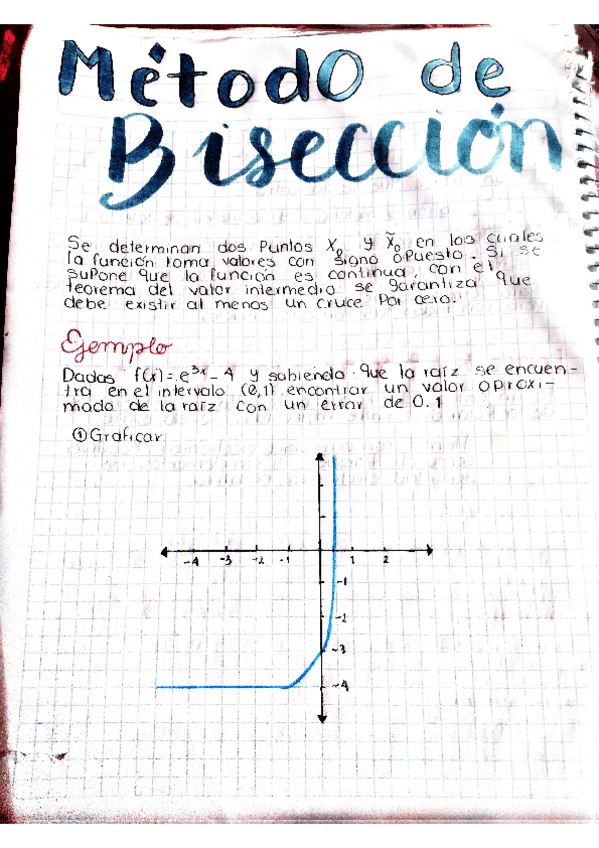 Método de
Bisección
Se determinan dos Puntos X₀ y X̃₀ en los cuales
la función toma valores con signo opuesto. Si se
supone que la función es continua, con el
teorema del valor intermedio se garantiza que
debe existir al menos un cruce Por cero.
Ejemplo
Dadas f(x)= e³ˣ - 4 y sabiendo que la raíz se encuen-
tra en el intervalo (0,1) encontrar un valor aproxi-
mado de la raíz con un error de 0.1
① Graficar
-4 -3 -2 -1 1 2
-1
-2
-3
-4